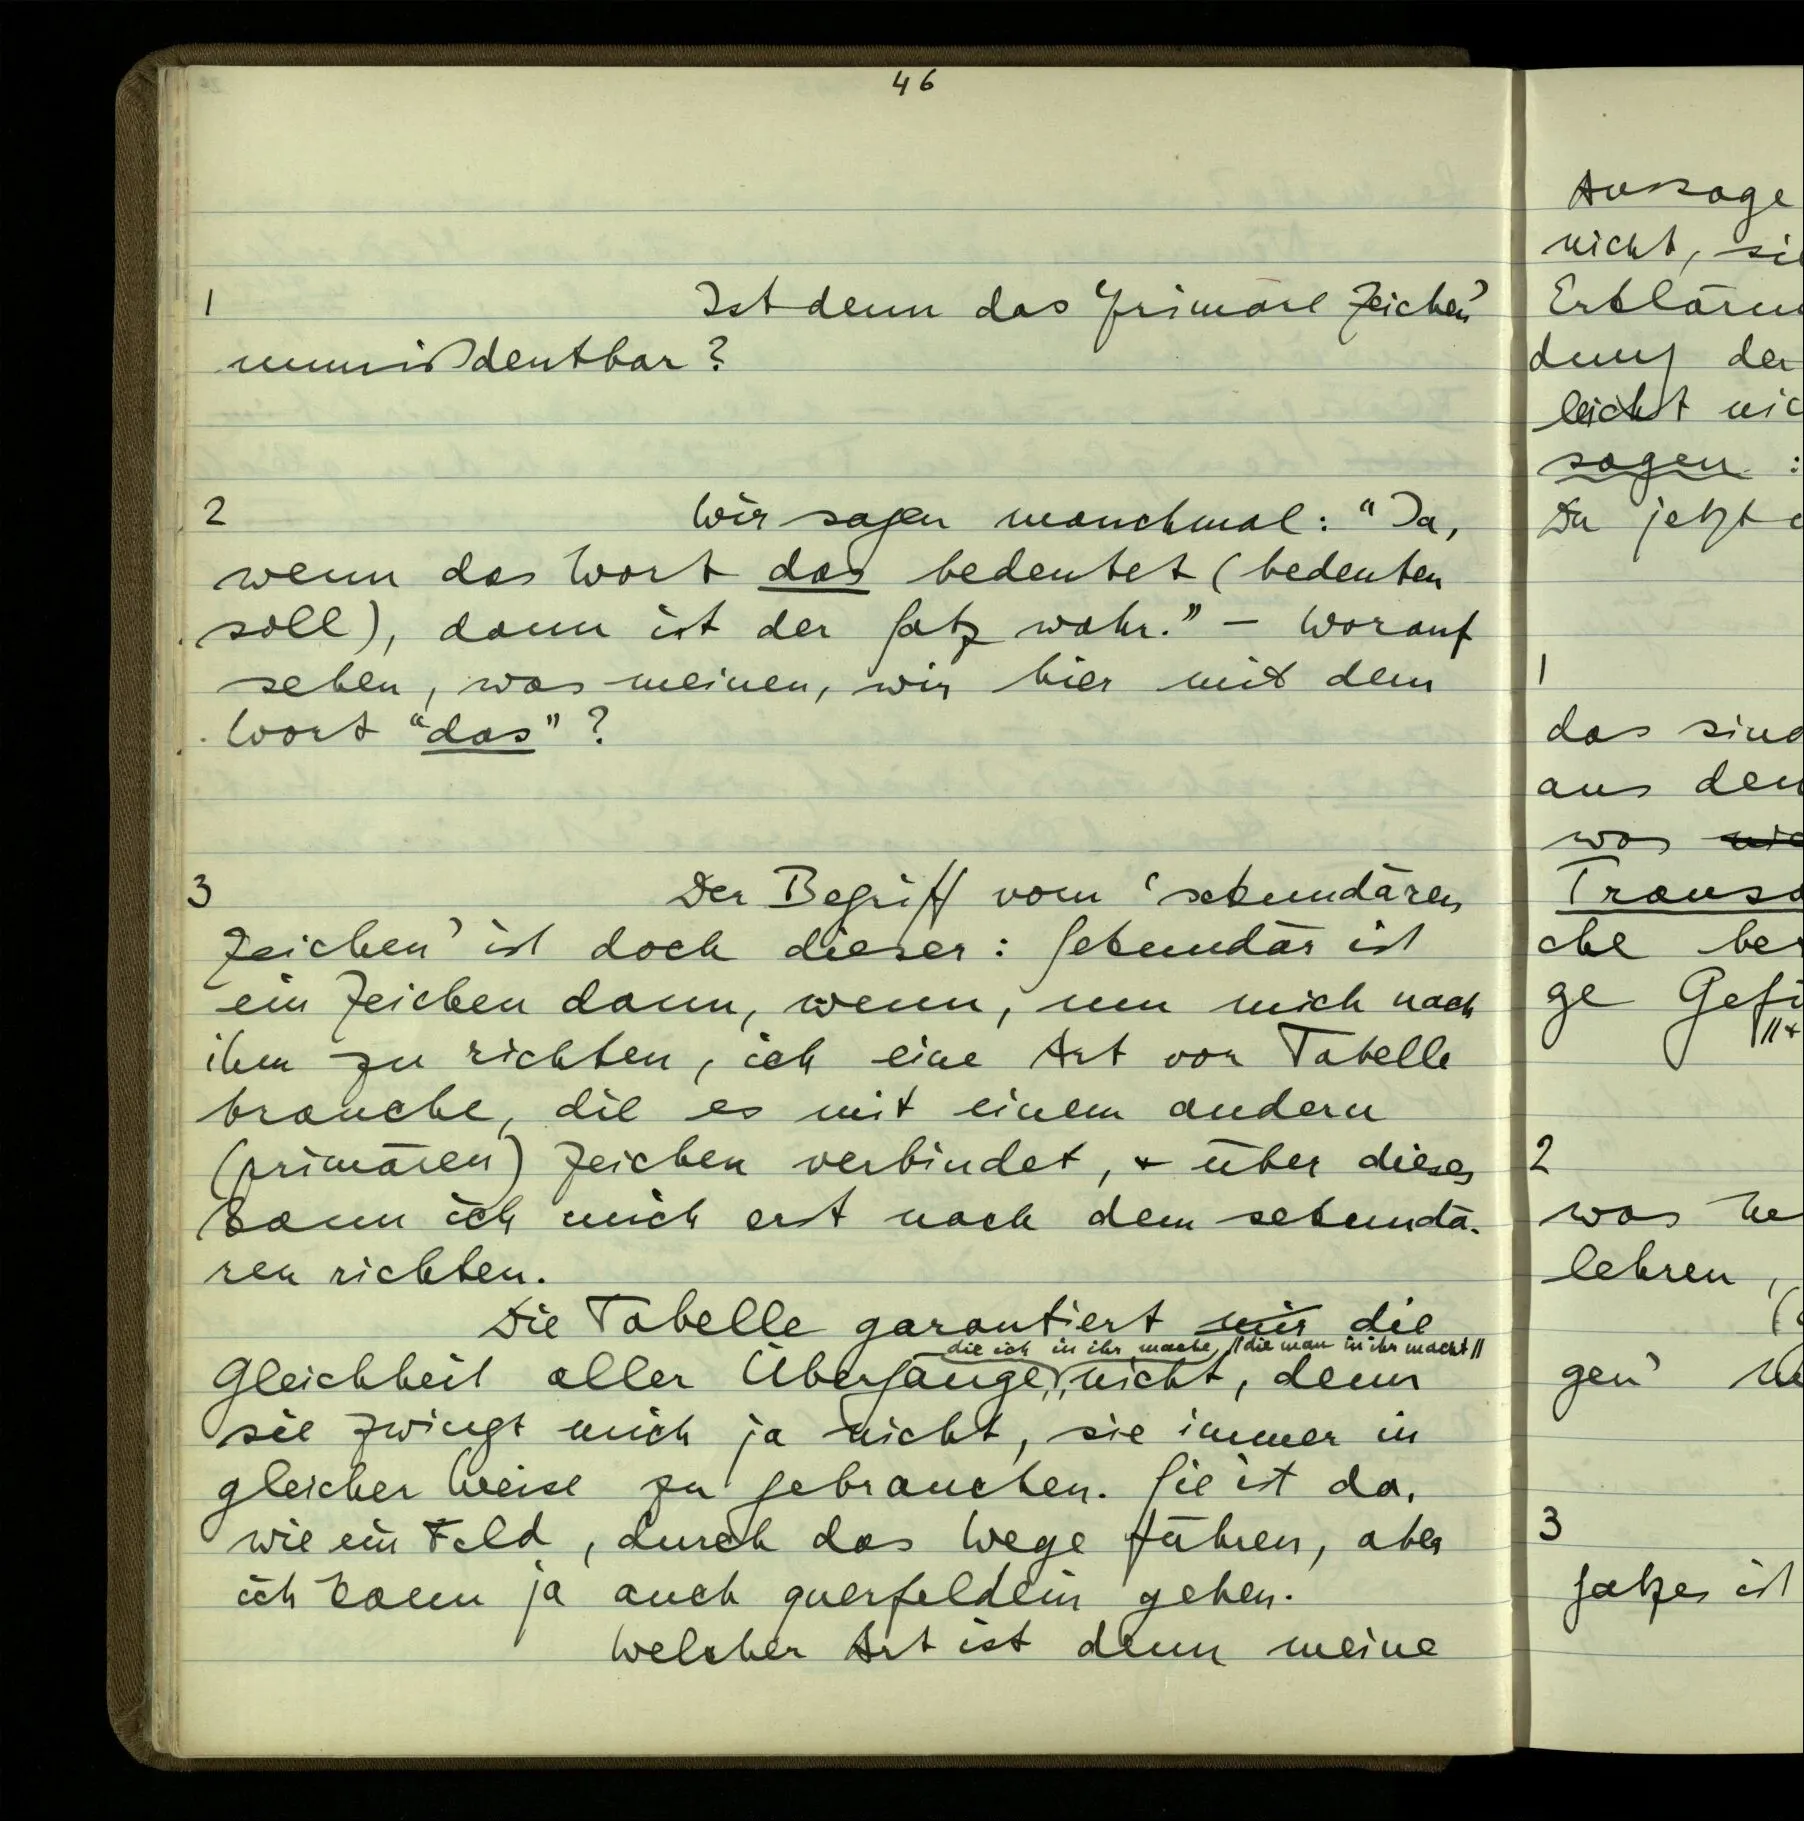 46
1 Ist denn das ‘primäre Zeichen’
unmißdeutbar?
2 Wir sagen manchmal: “Ja,
wenn das Wort das bedeutet (bedeuten
soll), dann ist der Satz wahr.” – Worauf
sehen, was meinen, wir hier mit dem
Wort “das”?
3 Der Begriff vom ‘sekundären
Zeichen’ ist doch dieser: Sekundär ist
ein Zeichen dann, wenn, um mich nach
ihm zu richten, ich eine Art von Tabelle
brauche, die es mit einem andern
(primären) Zeichen verbindet, & über dieses
kann ich mich erst nach dem sekundä-
ren richten.
Die Tabelle garantiert mir die
die ich in ihr mache, //die man in ihr macht//
Gleichheit aller Übergänge, nicht, denn
sie zwingt mich ja nicht, sie immer in
gleicher Weise zu gebrauchen. Sie ist da,
wie ein Feld, durch das Wege führen, aber
ich kann ja auch querfeldein gehen.
Welcher Art ist denn meine
Aussage
nicht, sie
Erklärun
dung der
leicht nic
sagen:
Du jetzt
1
das sind
aus den
was
Transa
che be
ge Gefü
2
was
lehren,
gen’
3
Satzes ist